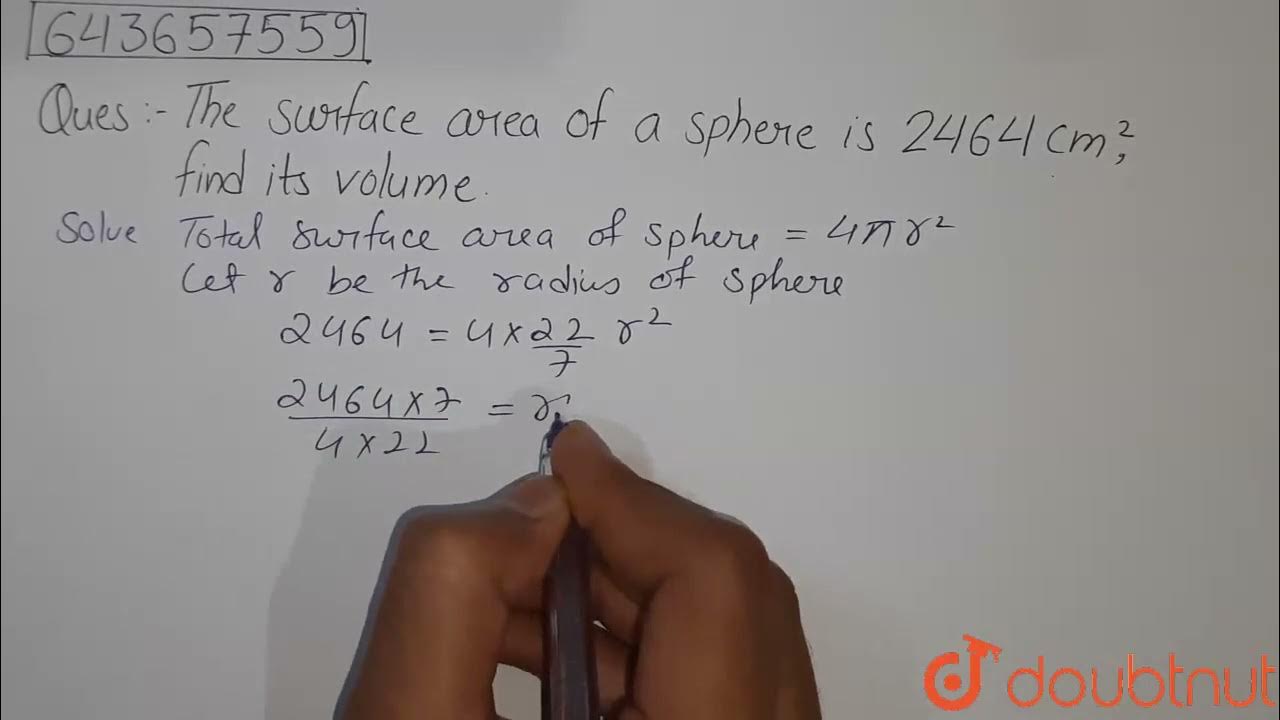 643657559
Ques :- The surface area of a sphere is 2464 cm²,
find its volume.
Solve Total surface area of sphere = 4πr²
Let r be the radius of sphere
2464 = 4 × 22/7 r²
2464 × 7 / 4 × 22 = r
doubtnut